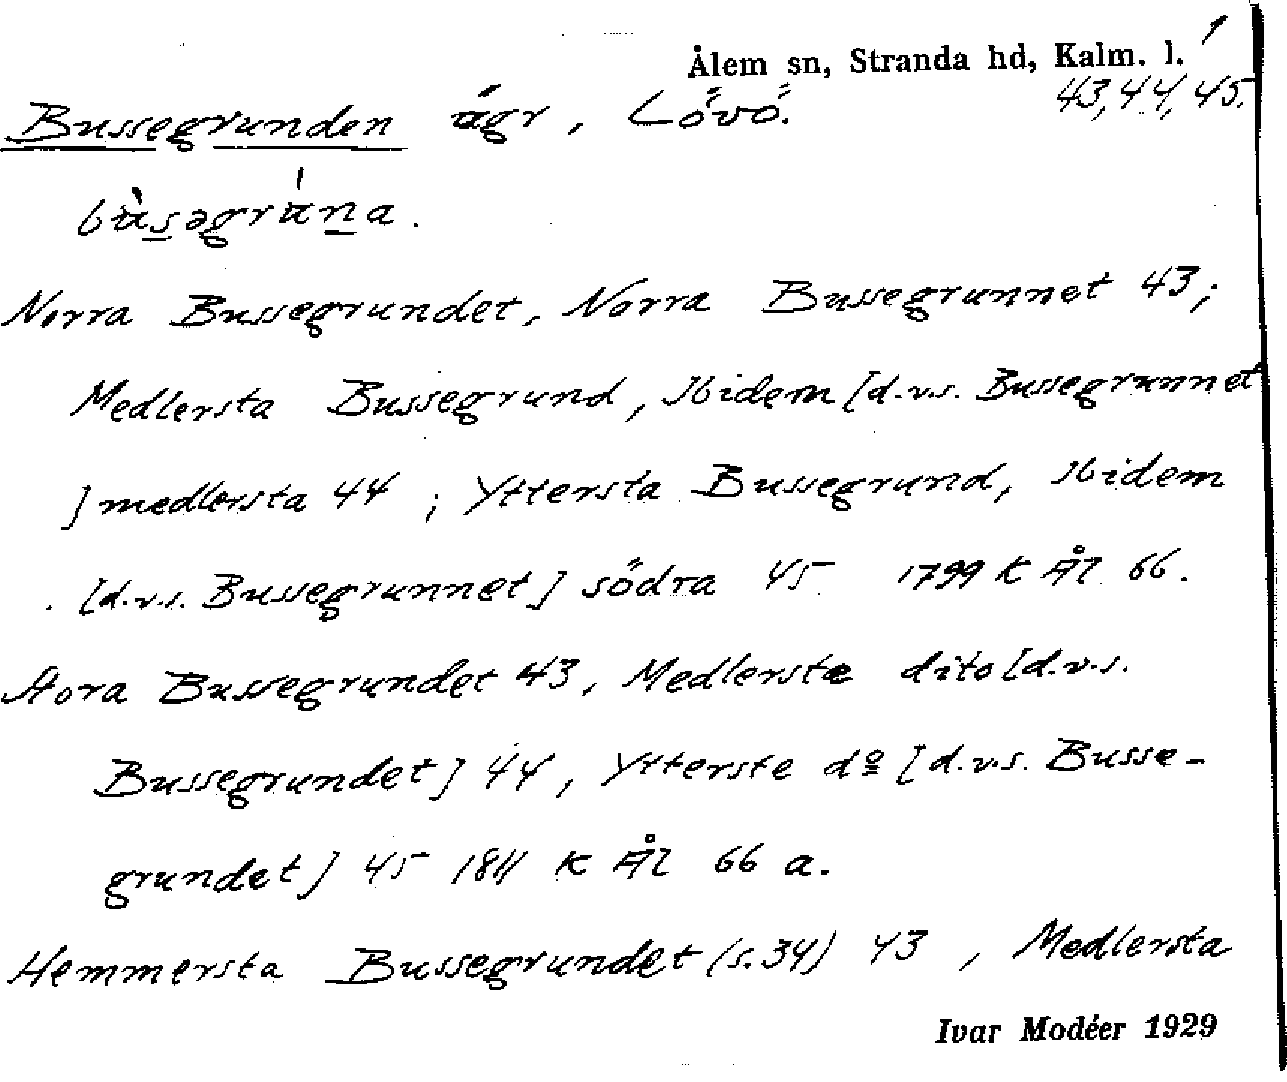 Ålem sn, Stranda hd, Kalm. l. 1
43, 44, 45.
Bussegrunden ägr, Lövö.
bùsəgrúna.
Norra Bussegrundet, Norra Bussegrunnet 43;
Medlersta Bussegrund, Ibidem [d.v.s. Bussegrunnet
] medlersta 44; Yttersta Bussegrund, Ibidem
[d.v.s. Bussegrunnet] södra 45 1799 K Ål 66.
Stora Bussegrundet 43, Medlerste dito [d.v.s.
Bussegrundet] 44, Ytterste dº [d.v.s. Busse-
grundet] 45 1811 K Ål 66 a.
Hemmersta Bussegrundet (s. 34) 43, Medlersta
Ivar Modéer 1929